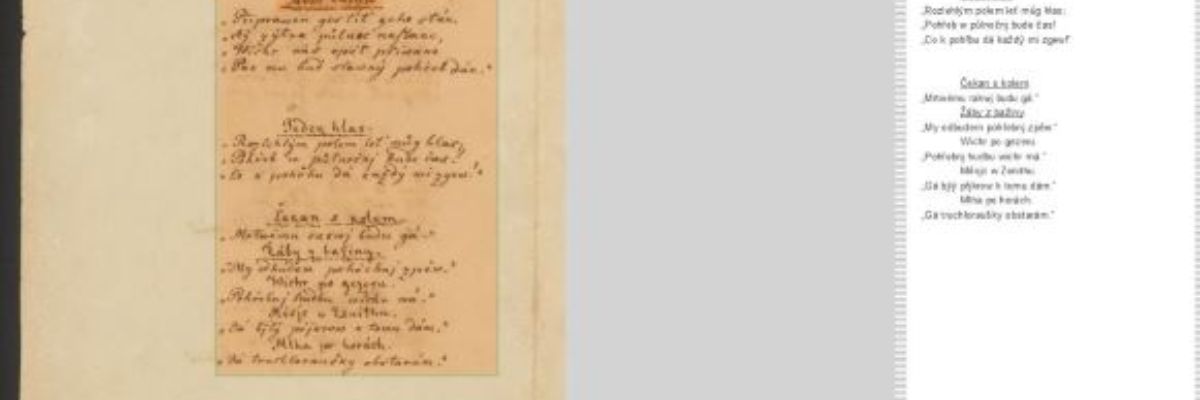 „Připrawen gest giž geho stán.
„Až zýtra půlnoc nastane,
„Wichr nás opět přiwane
„Pak mu buď slawný pohřeb dán.“
Geden hlas.
„Rozlehlým polem leť můg hlas,
„Pohřeb w půlnočný bude čas!
„Co k pohřbu dá každý mi zgew!“
Čekan s kolem.
„Mrtwému rakwj budu gá.“
Žáby z bažiny.
„My odbudem pohřebnj zpěw.“
Wichr po gezeru.
„Pohřebnj hudbu wichr má.“
Měsjc w Zenithu.
„Gá bjlý přjkrow k tomu dám.“
Mlha po horách.
„Gá truchloraušky obstarám.“
„Rozlehlým polem leť můg hlas:
„Pohřeb w půlnočný bude čas!
„Co k pohřbu dá každý mi zgew!“
Čekan s kolem
„Mrtwému rakwj budu gá.“
Žáby z bažiny.
„My odbudem pohřebnj zpěw.“
Wichr po gezeru.
„Pohřebnj hudbu wichr má.“
Měsjc w Zenithu.
„Gá bjlý přjkrow k tomu dám.“
Mlha po horách.
„Gá truchloraušky obstarám.“